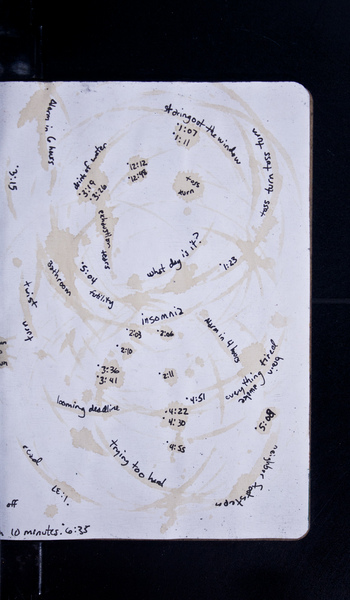 Alarm in 6 hours
staring out the window
·1:07
·1:11
turn toss turn toss
drink of water
·3:19
·3:26
·12:12
·12:48
toss
turn
·3:15
exhaustion tears
what day is it?
·1:23
bathroom
·5:04
futility
twist
turn
insomnia
·2:03
·2:06
·2:10
alarm in 4 hours
·3:36
·3:41
·2:11
everything tired
·4:51
looming deadline
·4:22
·4:30
·4:55
trying too hard
·1:37
off
10 minutes. 6:35